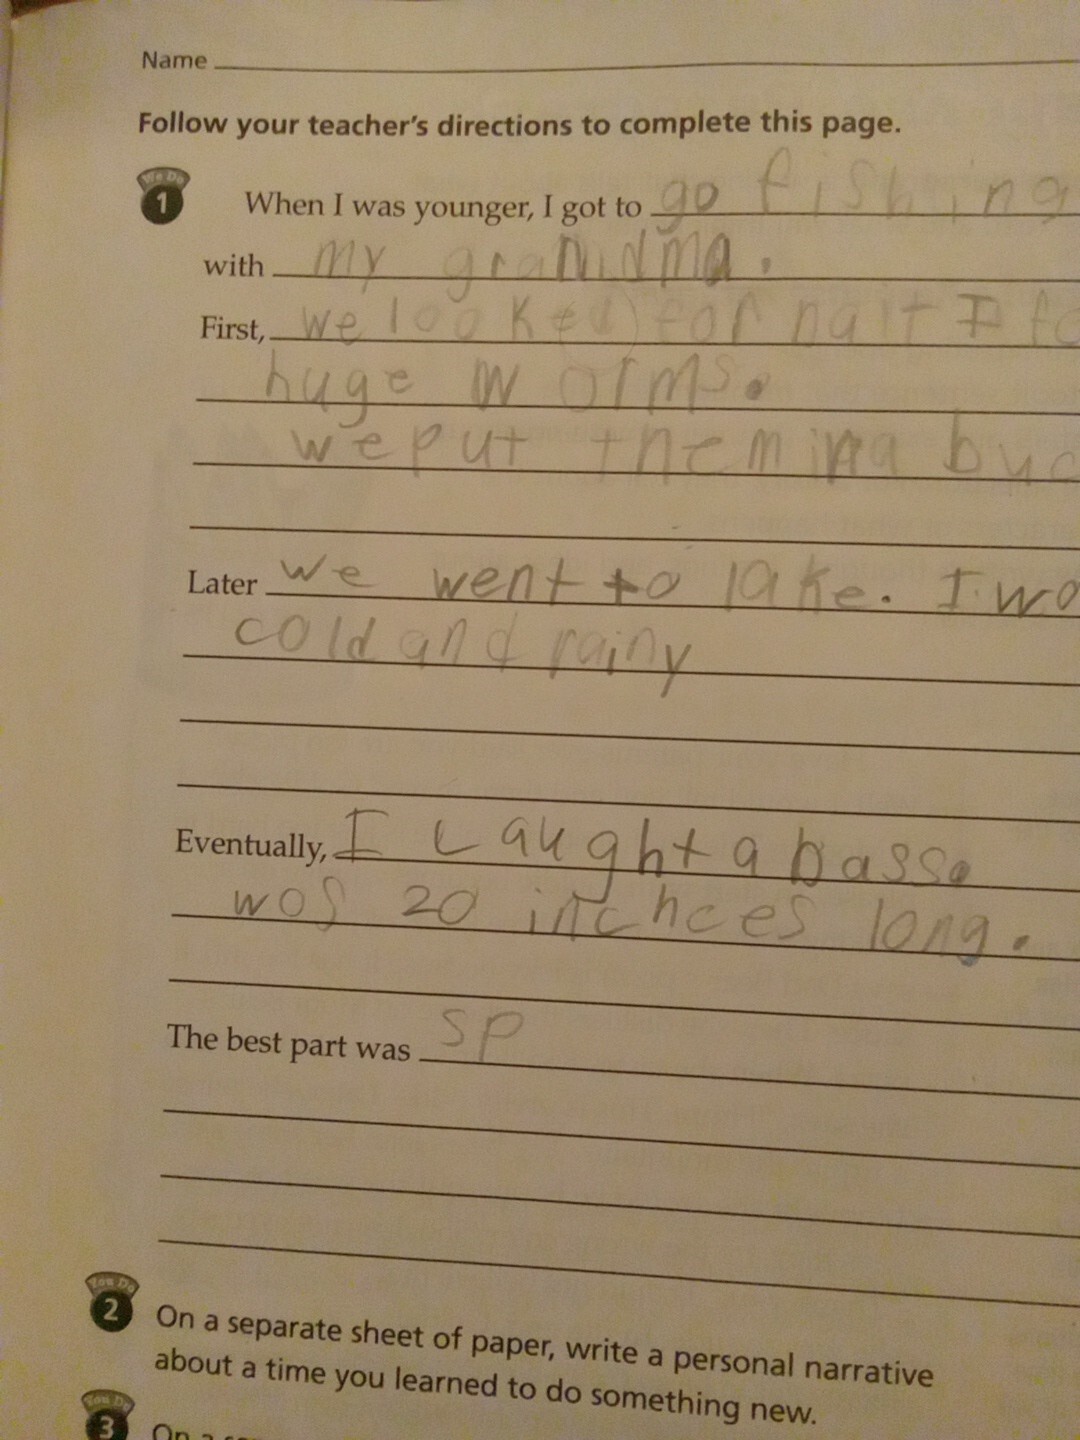 Name
Follow your teacher's directions to complete this page.
We Do
1 When I was younger, I got to go fishing
with my grandma.
First, we looked for bait I fo
huge worms.
we put them in a buc
Later we went to lake. I wo
cold and rainy
Eventually, I caught a bass.
wos 20 inchces long.
The best part was sp
You Do
2 On a separate sheet of paper, write a personal narrative
about a time you learned to do something new.
You Do
3 On a